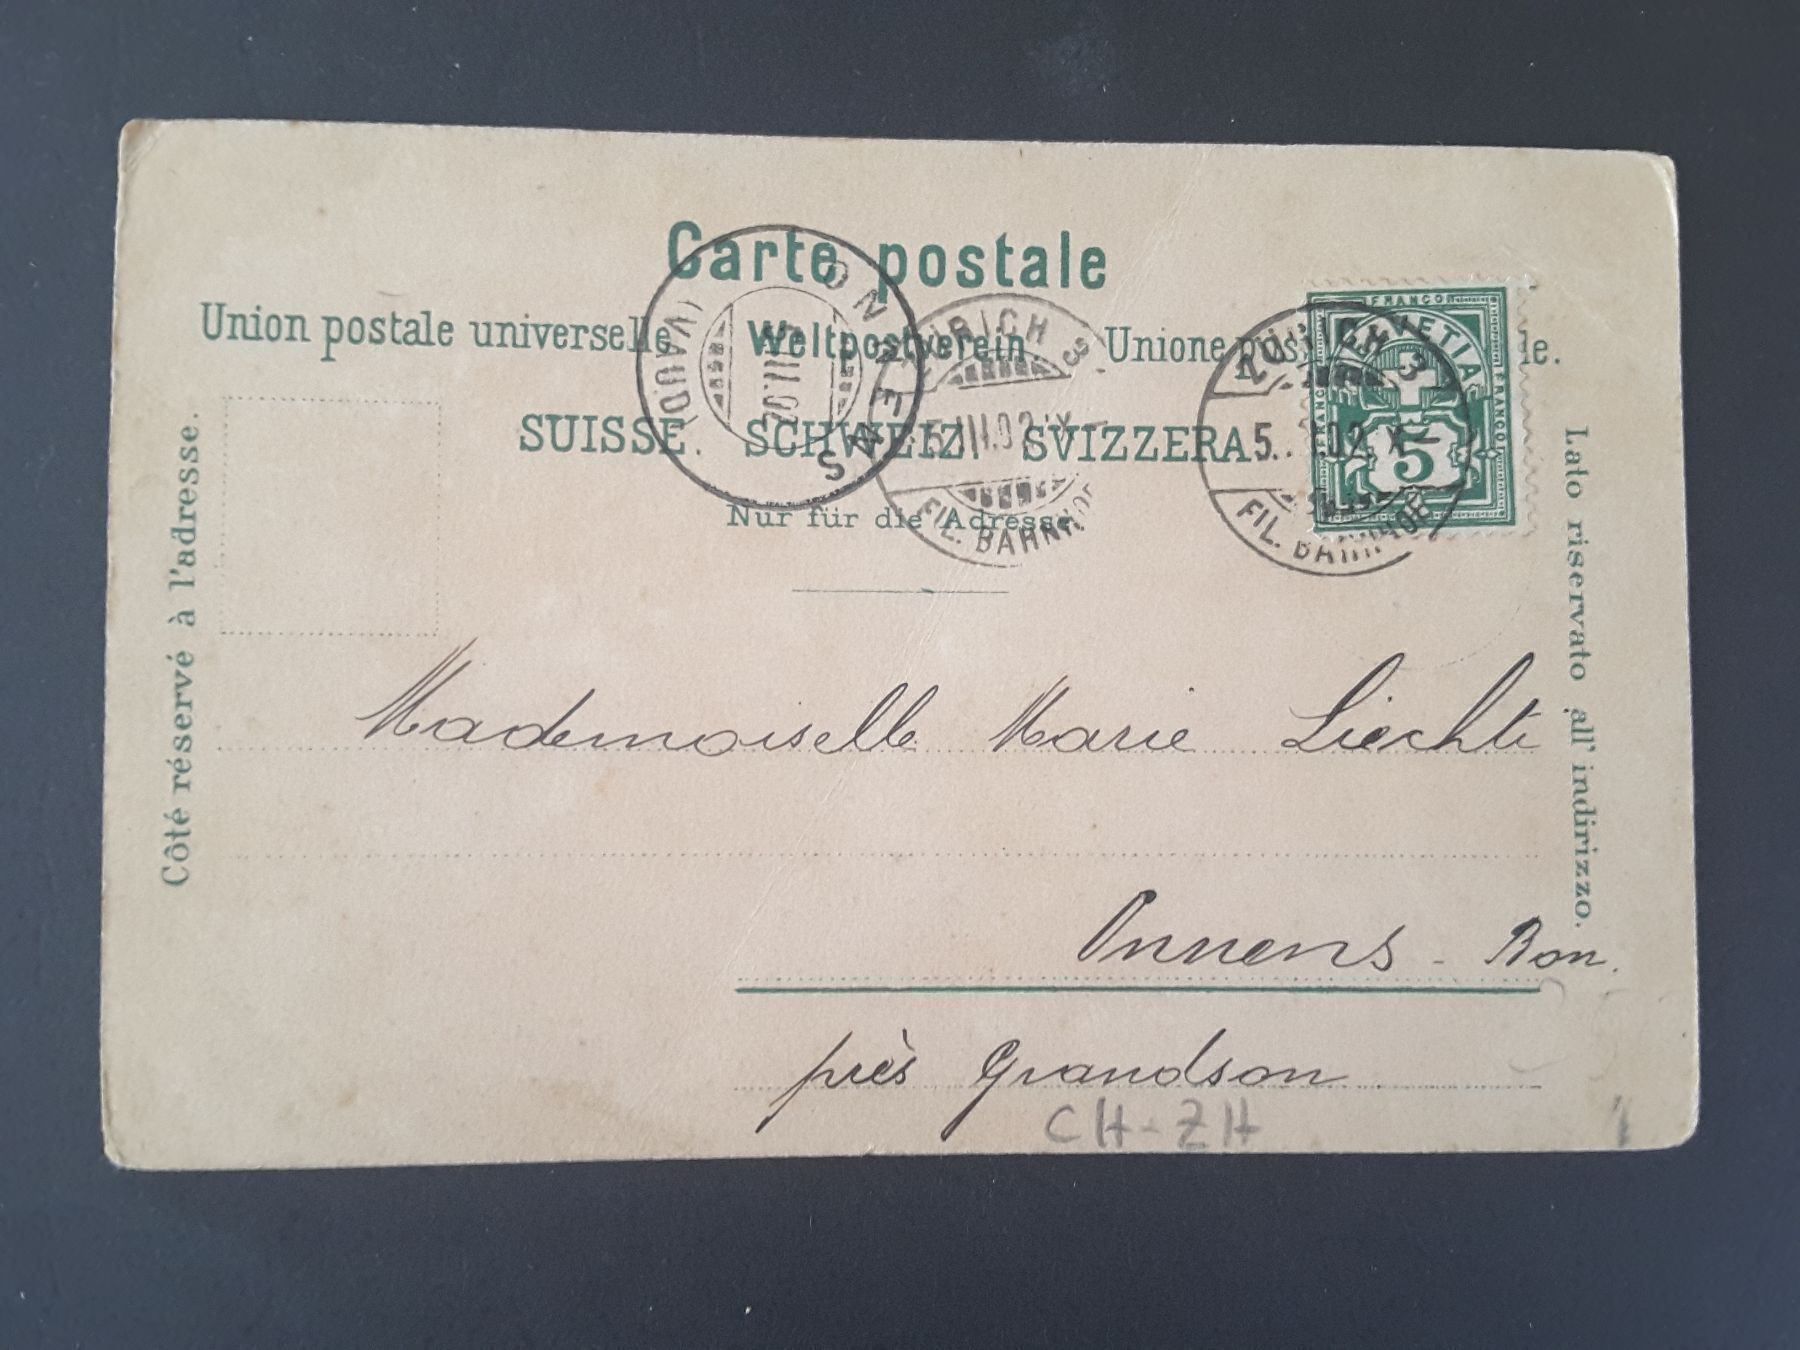 Carte postale
Union postale universelle. Weltpostverein. Unione
SUISSE. SCHWEIZ. SVIZZERA
Nur für die Adresse
Côté réservé à l'adresse.
Lato riservato all' indirizzo.
ONNENS
(VAUD)
ZÜRICH 3
5.III.02.IX
FIL. BAHNHOF
ZÜRICH 3
FIL. BAHNHOF
FRANCO
HELVETIA
FRANCO
FRANCO
5
Mademoiselle Marie Liechti
Onnens - Bon.
près Grandson
CH-ZH
1